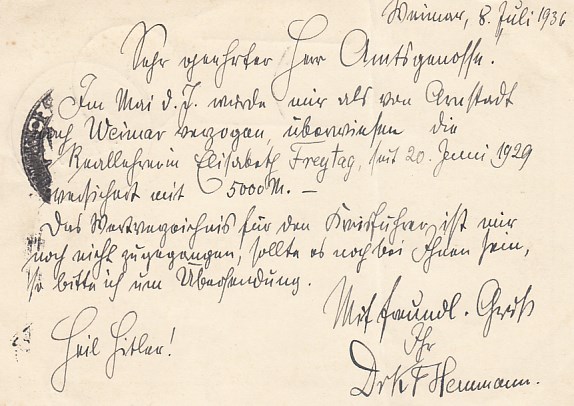 Weimar, 8. Juli 1936
Sehr geehrter Herr Amtsgenosse.
Im Mai d. J. wurde mir als von Arnstadt
nach Weimar verzogen, überwiesen die
Reallehrerin Elisabeth Freytag, seit 20. Juni 1929
versichert mit 5000 M. –
Das Wertverzeichnis für den Kreisführer ist mir
noch nicht zugegangen, sollte es noch bei Ihnen sein,
so bitte ich um Übersendung.
Mit freundl. Gruß
Heil Hitler!
Ihr
Dr K F Hemmann.